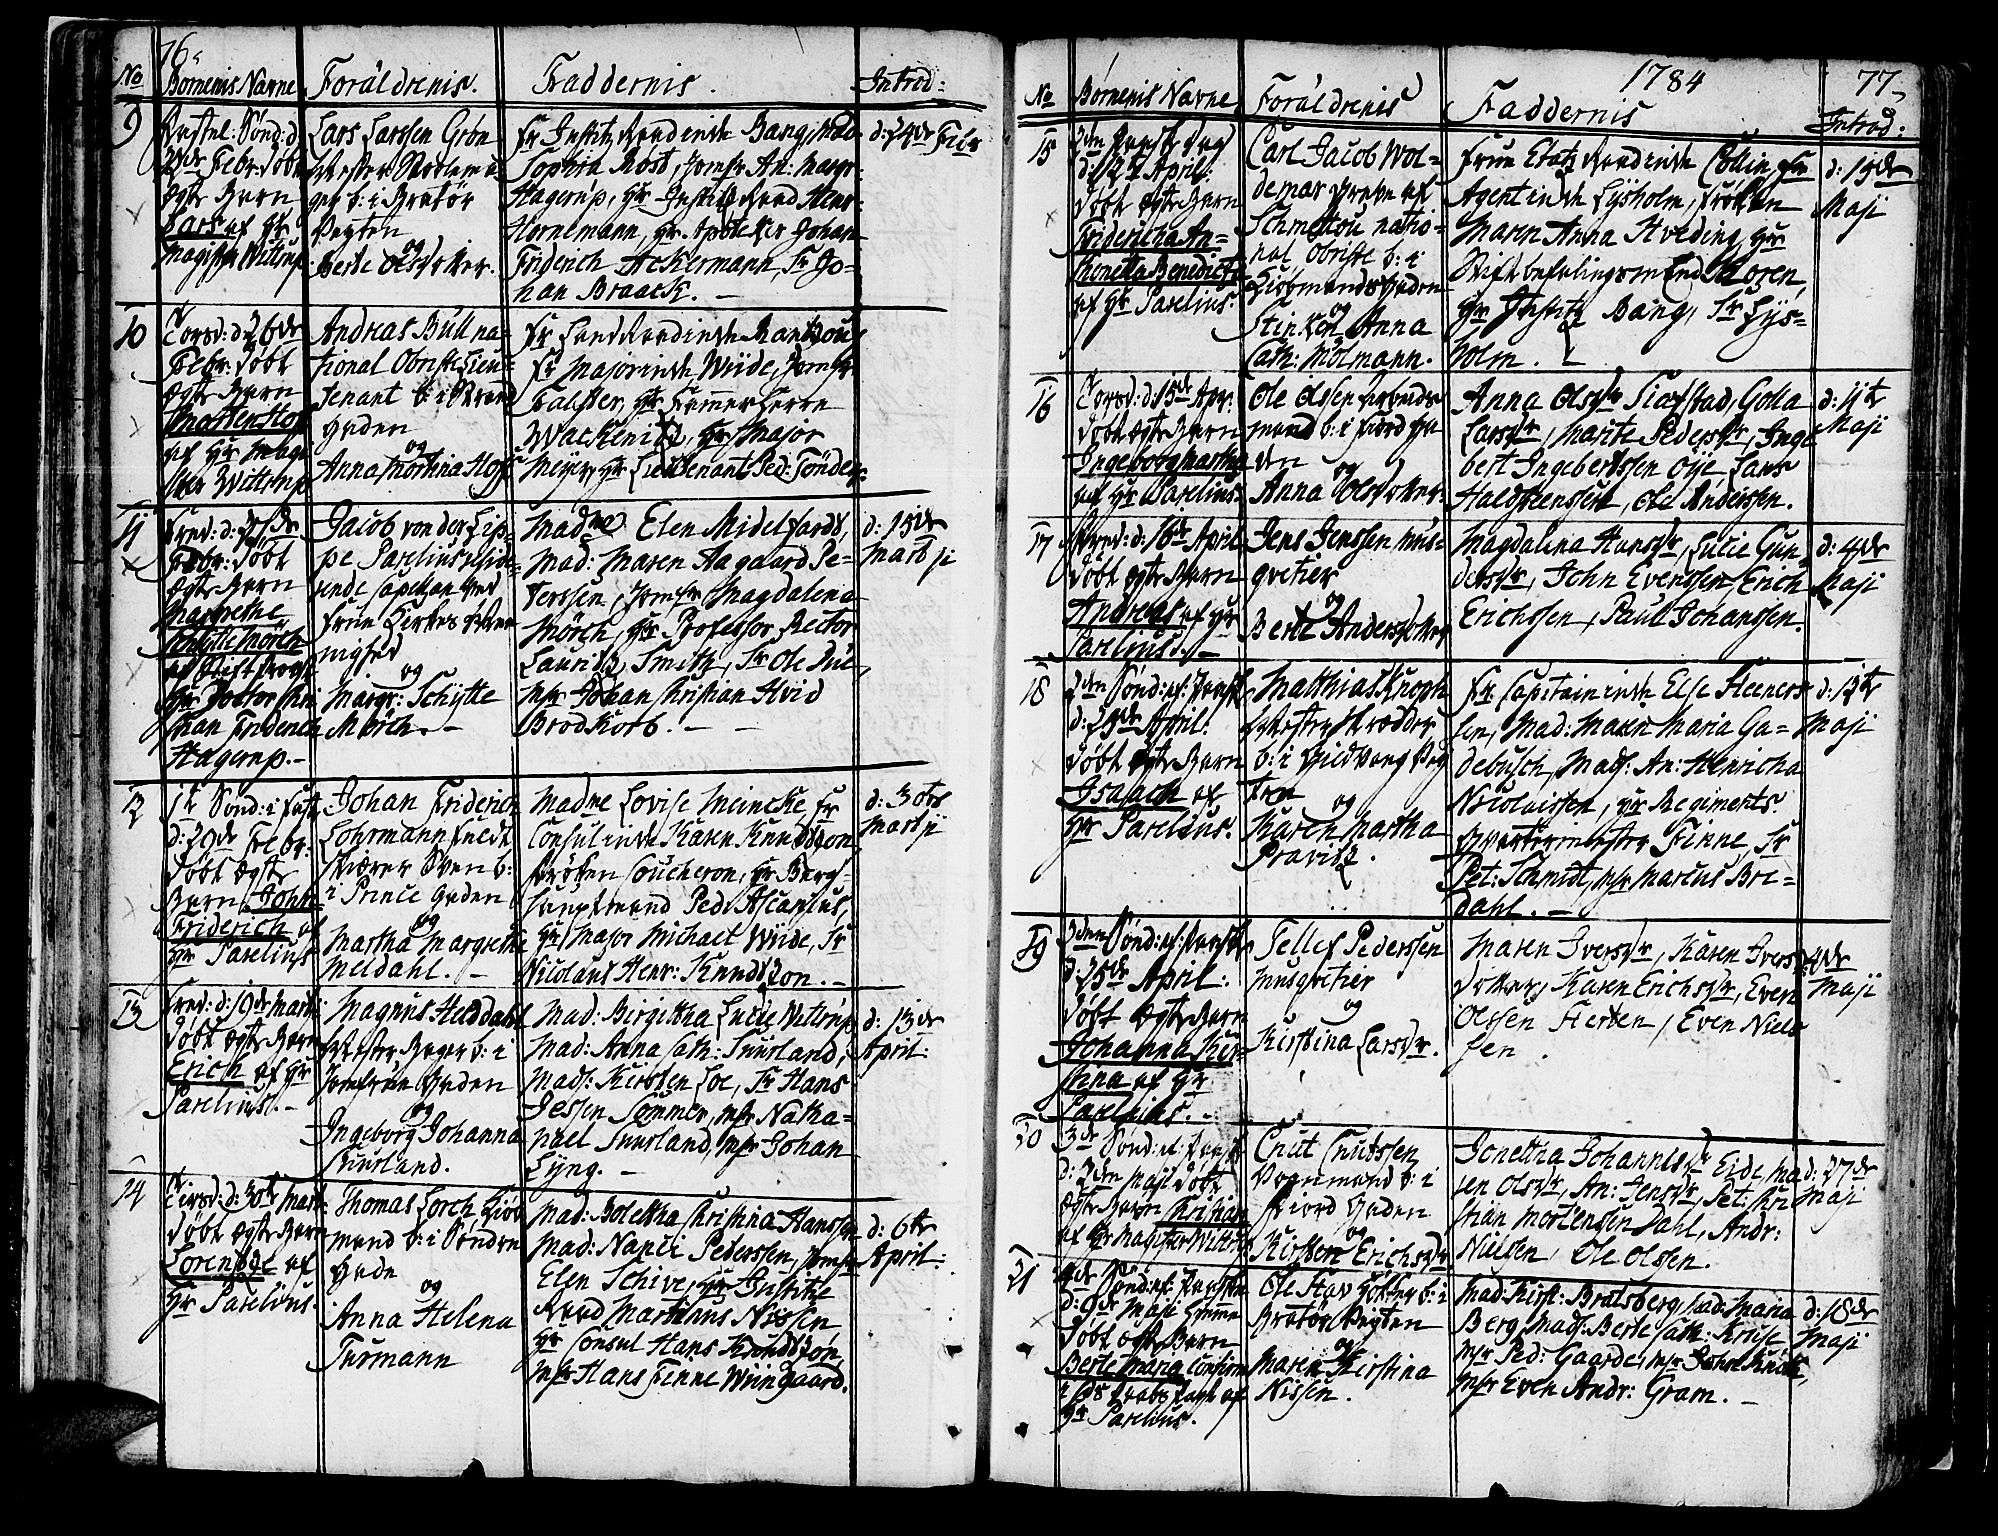 76.
No
Børnenis Navne
Forældrenis.
Faddernis.
Introd:
9
Fastel: Sønd: d:
22de Febr: døbt
ægte Barn
Lars af Hr
Magister Wittrup
Lars Larssen Grøn
b: i Bratør
Veyten
og
Berte Olsdotter.
Fr Justitz Raadinde Bang, Mad:
Sophia Rost, Jomfr An: Margr:
Hagerup, Hr Justitz Raad Henr:
Hornemann, Hr Apoteker Johan
Friderich Ackermann, Sr Jo-
han Braack. -
d: 24de Febr
10
Torsd: d: 26de
Febr: døbt
ægte Barn
Morten Hoff
af Hr Magi
ster Wittrup
Andreas Bull na-
tional Obriste Lieu-
tenant b: i Strand
Gaden
og
Anna Martina Hoff
Fr Land Raadinde Rantzou
Fr Majorinde Wiide, Jomfr
Falster, Hr Kammerherre
Wackenitz, Hr Major
Meyer, Hr Lieutenant Ped: Tønder.
11
Fred: d: 27de
Febr: døbt
ægte Barn
Margrethe
Schytte Mørch
af Stift Provst
Hr Doctor Chri
stian Friderich
Hagerup. -
Jacob von der Lip-
pe Parelius resid-
erende Capellan ved
Frue Kirke
og
Margr: Schytte
Mørch. -
Madme Elen Midelfardt,
Mad: Maren Aagaard Pe-
terssen, Jomfr Magdalena
Mörch, Hr Professor Rector
Lauritz Smith, Sr Ole
Msr Johan Christian Hvid
Brodkorb. -
d: 15de
Martji
12
1te Sønd: i Faste
d: 29de Febr:
døbt ægte
Barn John
Friderich af
Hr Parelius
Johan Friderich
Lohrmann Feldt
Skiærer Sven b:
i Prince Gaden
og
Martha Margrethe
Meldahl. -
Madme Lovise Meincke, Fr
Consulinde Karen Knudtzon
Frøken Coucheron, Hr Berg-
hauptmand Ped: Ascanius,
Hr Major Michael Wiide, Sr
Nicolaus Henr: Knudtzon. -
d: 30te
Martji
13
Fred: d: 19de Marti
døbt ægte Barn
Erich af Hr
Parelius. -
Magnus Helddahl
Mester Bager b: i
Jomfrue Gaden
og
Ingeborg Johanna
Suurland.
Mad: Birgitha Lucie Wittrup
Mad: Anna Cath: Suurland,
Mads: Kirsten Loe, Sr Hans
Jessen Sommer, Msr Natha-
nael Suurland, Msr Johan
Lyng. -
d: 13de
April:
14
Tirsd: d: 30te Mart:
døbt ægte Barn
Lorentze af
Hr Parelius.
Thomas Lorch Kiøb
mand b: i Søndre
Gade
og
Anna Helena
Turmann
Mad: Boletha Christina Hanssen
Mad: Napli Pederssen, Jomfr
Elen Schive, Hr Justitie
Raad Marthinus Nissen
Hr Consul Hans Knudtzon,
Msr Hans Finne Wiingaard.
d: 6te
April:
1784
77.
No
Børnenis Navne
Forældrenis
Faddernis
Introd:
15
2den Paaske Dag
d: 12te April:
døbt ægte Barn
Friderica An-
thonetta Benedicte
af Hr Parelius.
Carl Jacob Wol-
demar Greve af
Schmettou natio-
nal Obriste b: i
Kiøbmands Gaden
og
Stinkon Anna
Cath: Mölmann.
Frue Etatz Raadinde Collin, Fr
Agentinde Lysholm, Frøken
Maren Anna Hveding, Hr
Stiftbefalingsmand von Rosen,
Hr Justitz Bang, Sr Lys-
holm. -
d: 19de
Maji
16
Torsd: d: 15de Apr:
døbt ægte Barn
Ingeborg Martha
af Hr Parelius.
Ole Olssen Arbeids
mand b: i Fiord Ga
den
og
Anna Olsdotter.
Anna Olsdr Siafstad, Golla
Larsdr, Marite Pedersdr, Inge
bert Ingebertssen Oÿe, Lars
Haldsteenssen, Ole Anderssen.
d: 11te
Maji
17
Fred: d: 16de April
døbt ægte Barn
Andreas af Hr
Parelius. -
Jens Jenssen mus-
qvetier
og
Berte Andersdotter
Magdalena Hansdr, Lucie Gun
dersdr, John Evenssen, Erich
Erichssen, Paul Johanssen.
d: 4de
Maji
18
2den Sønd: ef: Paaske
d: 25de April:
døbt ægte Barn
Isaach af
Hr Parelius.
Matthias Krogh
Mester Skrædder
b: i Hildvang Vey
ten
og
Karen Martha
Pravitz.
Fr Capitaininde Else Heeners
sen, Mad: Maren Maria Ga=
debusch, Mads: An: Henricha
Nicolaissen, Hr Regiments
Qvartermester Finne, Sr
Pet: Schmidt, Msr Marcus Bre
dahl. -
d: 12te
Maji
19
2den Sønd: ef: Paaske
d: 25de April:
døbt ægte Barn
Johanna Kir-
stina af Hr
Parelius. -
Tellef Pederssen
musqvetier
og
Kirstina Larsdr.
Maren Iversdr, Karen Ivers
dotter, Karen Erichsdr, Even
Olssen Hersen, Even Niels
sen.
Maji
20
3de Sønd: ef: Paaske
d: 2den Maji døbt
ægte Barn Christian
af Hr Magister Wittrup
Cnut Cnutssen
Vognmand b: i
Fiord Gaden
og
Kirsten Erichsdr
Jonetha Johannisdr Eide, Ma
ren Olsdr, An: Jensdr, Pet: Chri
stian Mortensen Dahl, Andr:
Nielsen, Ole Olssen.
d: 27de
Maji
21
4de Sønd: ef: Paaske
d: 9de Maji Hjemme
døbt ægte Barn
Berte Maria confirm
af
Hr Parelius.
Ole Stav b: i
Bratør Veyten
og
Maren Kirstina
Nissen.
Mad: Kirst: Bratsberg, Mad: Maria
Berg, Mads: Berte Cath: Kruse
Msr Ped: Gaarde, Msr
Msr Even Andr: Gram. -
d: 18de
Maji